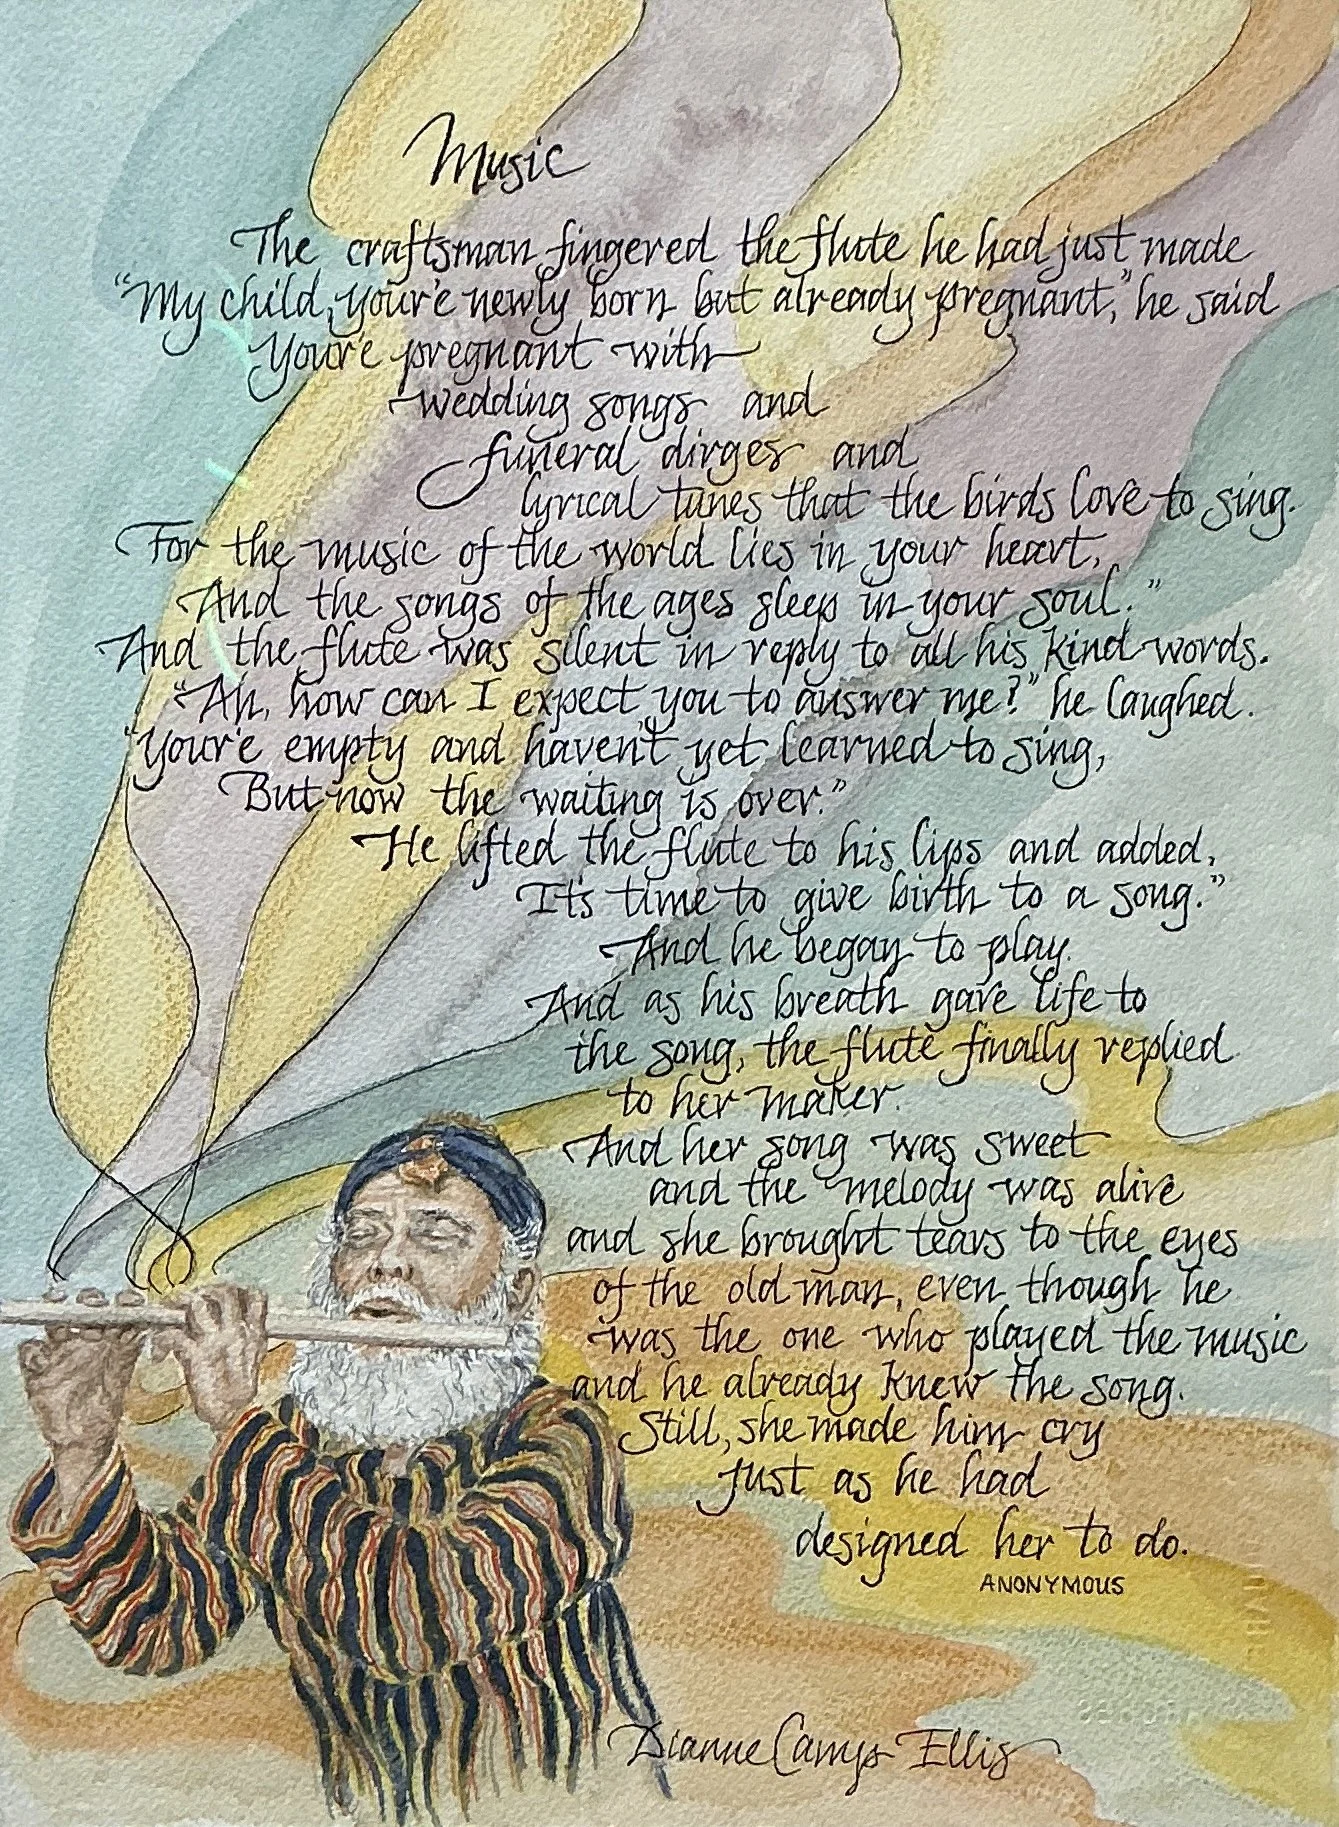 Music
The craftsman fingered the flute he had just made
"My child, you're newly born but already pregnant," he said
You're pregnant with
wedding songs and
funeral dirges and
lyrical tunes that the birds love to sing.
For the music of the world lies in your heart,
And the songs of the ages sleep in your soul."
And the flute was silent in reply to all his kind words.
"Ah, how can I expect you to answer me?" he laughed.
"You're empty and haven't yet learned to sing,
But now the waiting is over."
He lifted the flute to his lips and added,
It's time to give birth to a song."
And he began to play.
And as his breath gave life to
the song, the flute finally replied
to her maker.
And her song was sweet
and the melody was alive
and she brought tears to the eyes
of the old man, even though he
was the one who played the music
and he already knew the song.
Still, she made him cry
just as he had
designed her to do.
ANONYMOUS
Dianne Camps Ellis